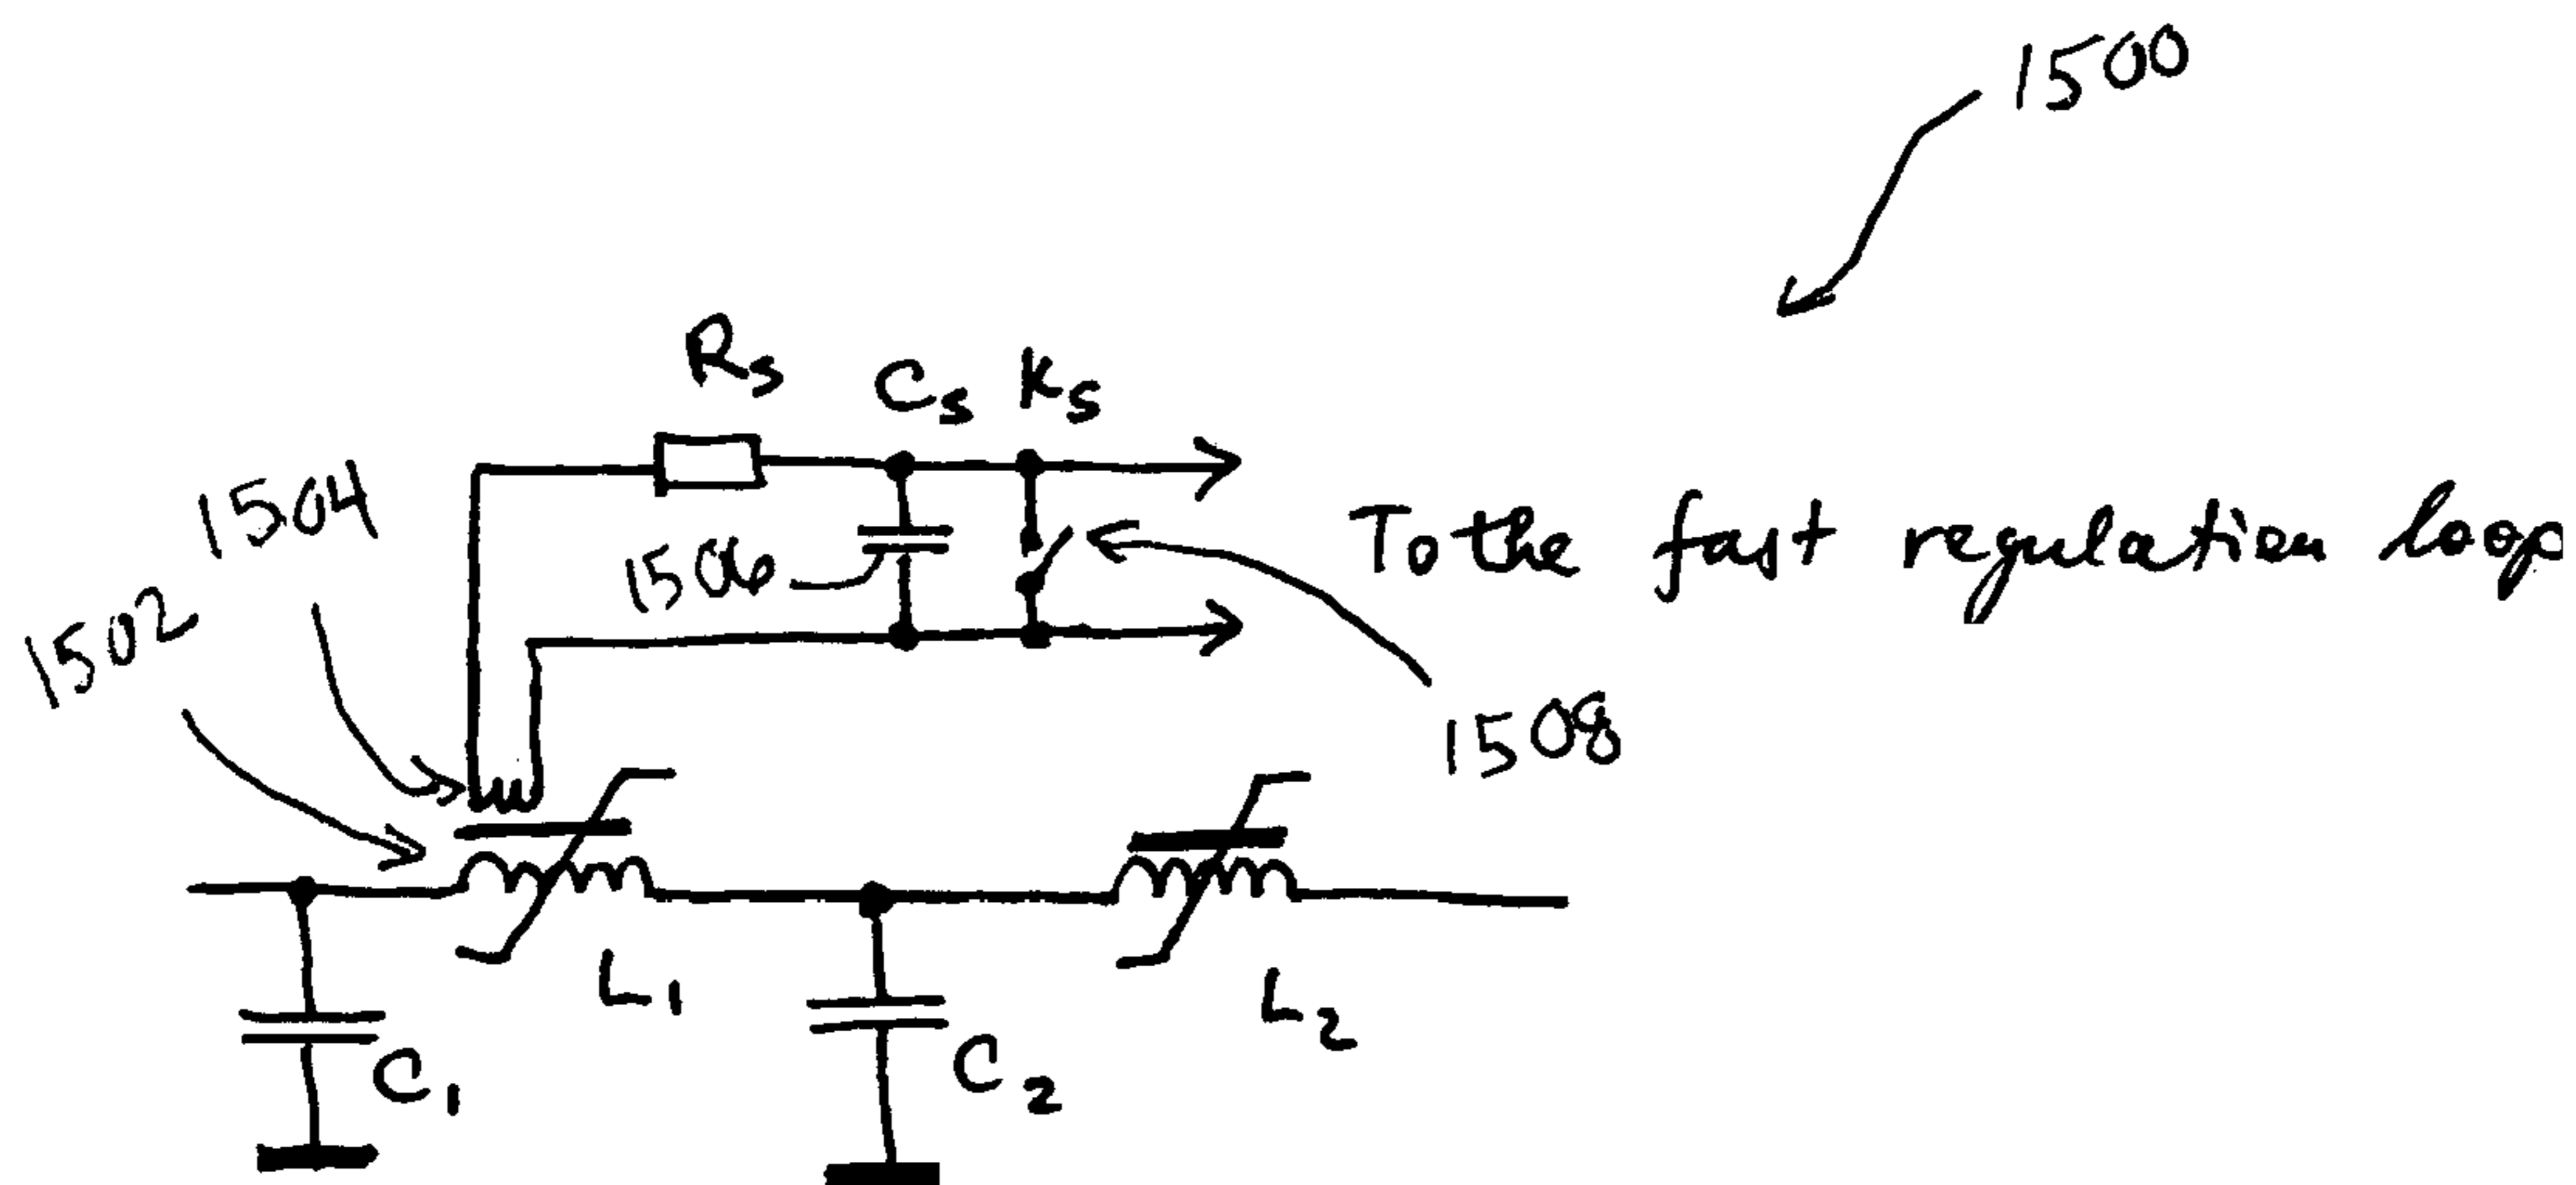 1500
Rs
Cs
Ks
1504
1506
To the fast regulation loop
1502
1508
L1
L2
C1
C2